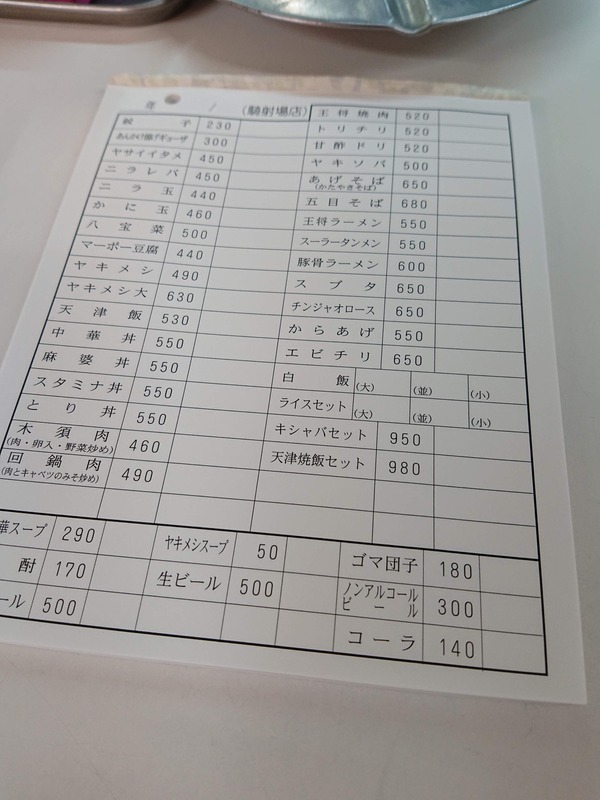 年 / (騎射場店)
餃子 230
あんかけ揚げギョーザ 300
ヤサイイタメ 450
ニラレバ 450
ニラ玉 440
かに玉 460
八宝菜 500
マーボー豆腐 440
ヤキメシ 490
ヤキメシ大 630
天津飯 530
中華丼 550
麻婆丼 550
スタミナ丼 550
とり丼 550
木須肉 460
(肉・卵入・野菜炒め)
回鍋肉 490
(肉とキャベツのみそ炒め)
王将焼肉 520
トリチリ 520
甘酢ドリ 520
ヤキソバ 500
あげそば 650
(かたやきそば)
五目そば 680
王将ラーメン 550
スーラータンメン 550
豚骨ラーメン 600
スブタ 650
チンジャオロース 650
からあげ 550
エビチリ 650
白飯 (大) (並) (小)
ライスセット (大) (並) (小)
キシャバセット 950
天津焼飯セット 980
華スープ 290
酎 170
ール 500
ヤキメシスープ 50
生ビール 500
ゴマ団子 180
ノンアルコール
ビール 300
コーラ 140